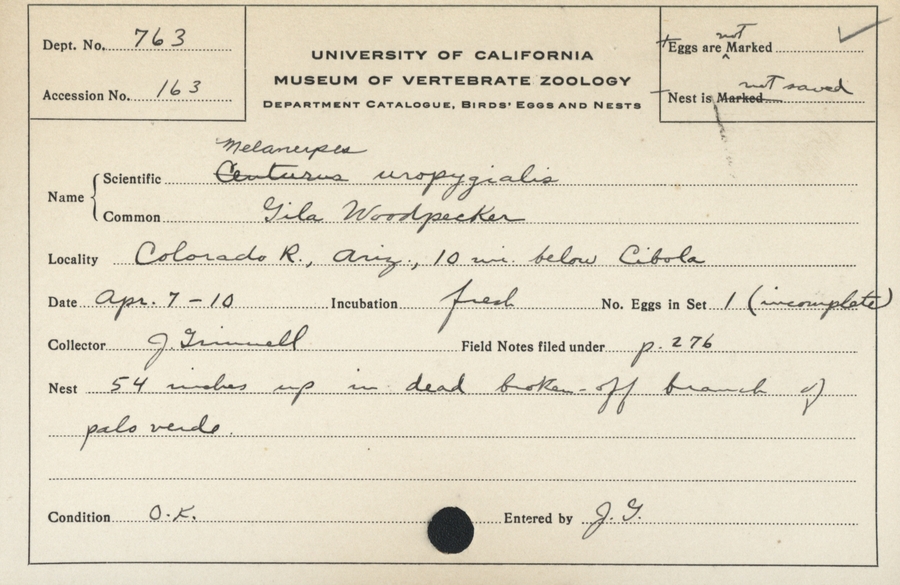 Dept. No. 763
Accession No. 163
UNIVERSITY OF CALIFORNIA
MUSEUM OF VERTEBRATE ZOOLOGY
DEPARTMENT CATALOGUE, BIRDS' EGGS AND NESTS
Eggs are not Marked
Nest is Marked not saved
Melanerpes
Name Scientific Centurus uropygialis
Common Gila Woodpecker
Locality Colorado R., Ariz., 10 mi. below Cibola
Date Apr. 7-10 Incubation fresh No. Eggs in Set 1 (incomplete)
Collector J. Grinnell Field Notes filed under p. 276
Nest 54 inches up in dead broken-off branch of
palo verde.
Condition O.K. Entered by J. G.